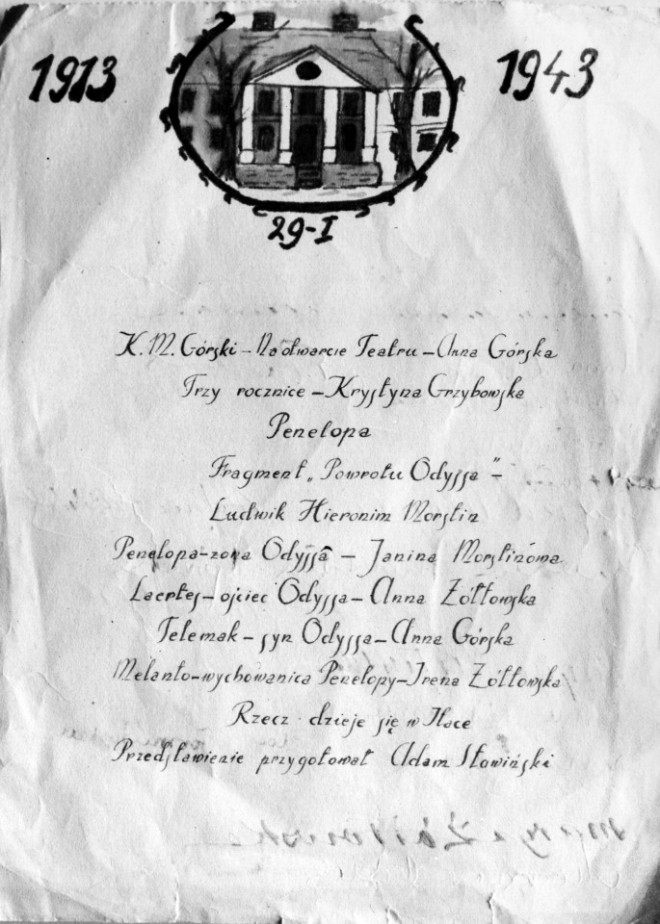 1913 1943
29-I
K. M. Górski – Na otwarcie Teatru – Anna Górska
Trzy rocznice – Krystyna Grzybowska
Penelopa
Fragment „Powrotu Odyssa” –
Ludwik Hieronim Morstin
Penelopa-żona Odyssa – Janina Morstinowa
Laertes – ojciec Odyssa – Anna Żółtowska
Telemak – syn Odyssa – Anna Górska
Melanto-wychowanica Penelopy – Irena Żółtowska
Rzecz dzieje się w Itace
Przedstawienie przygotował Adam Słowiński